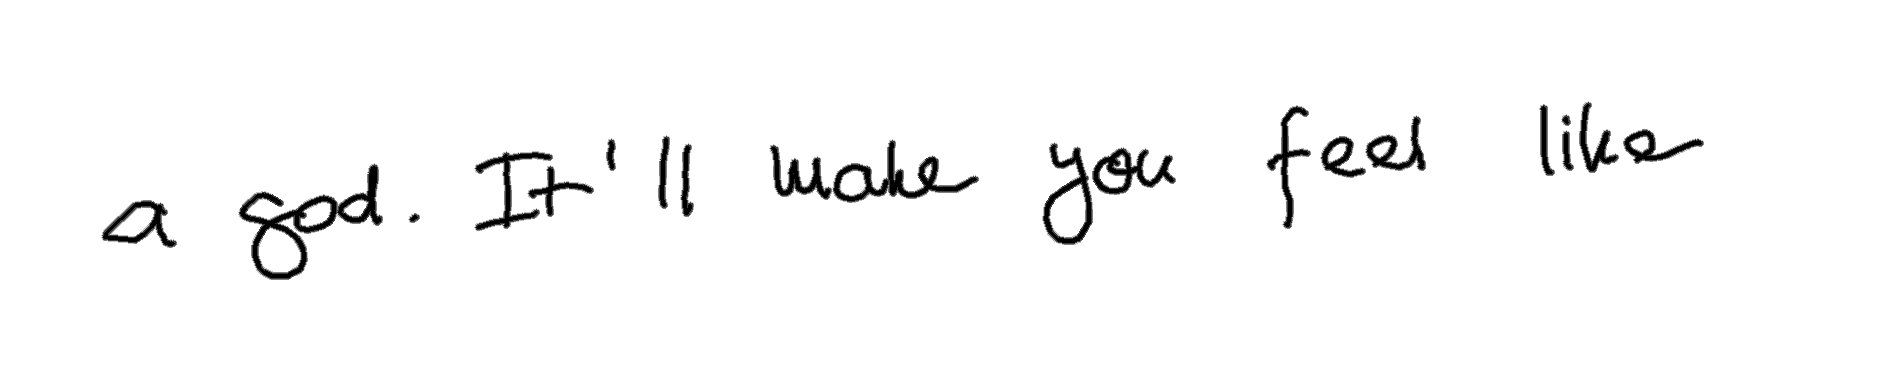 a god. It'll make you feel like